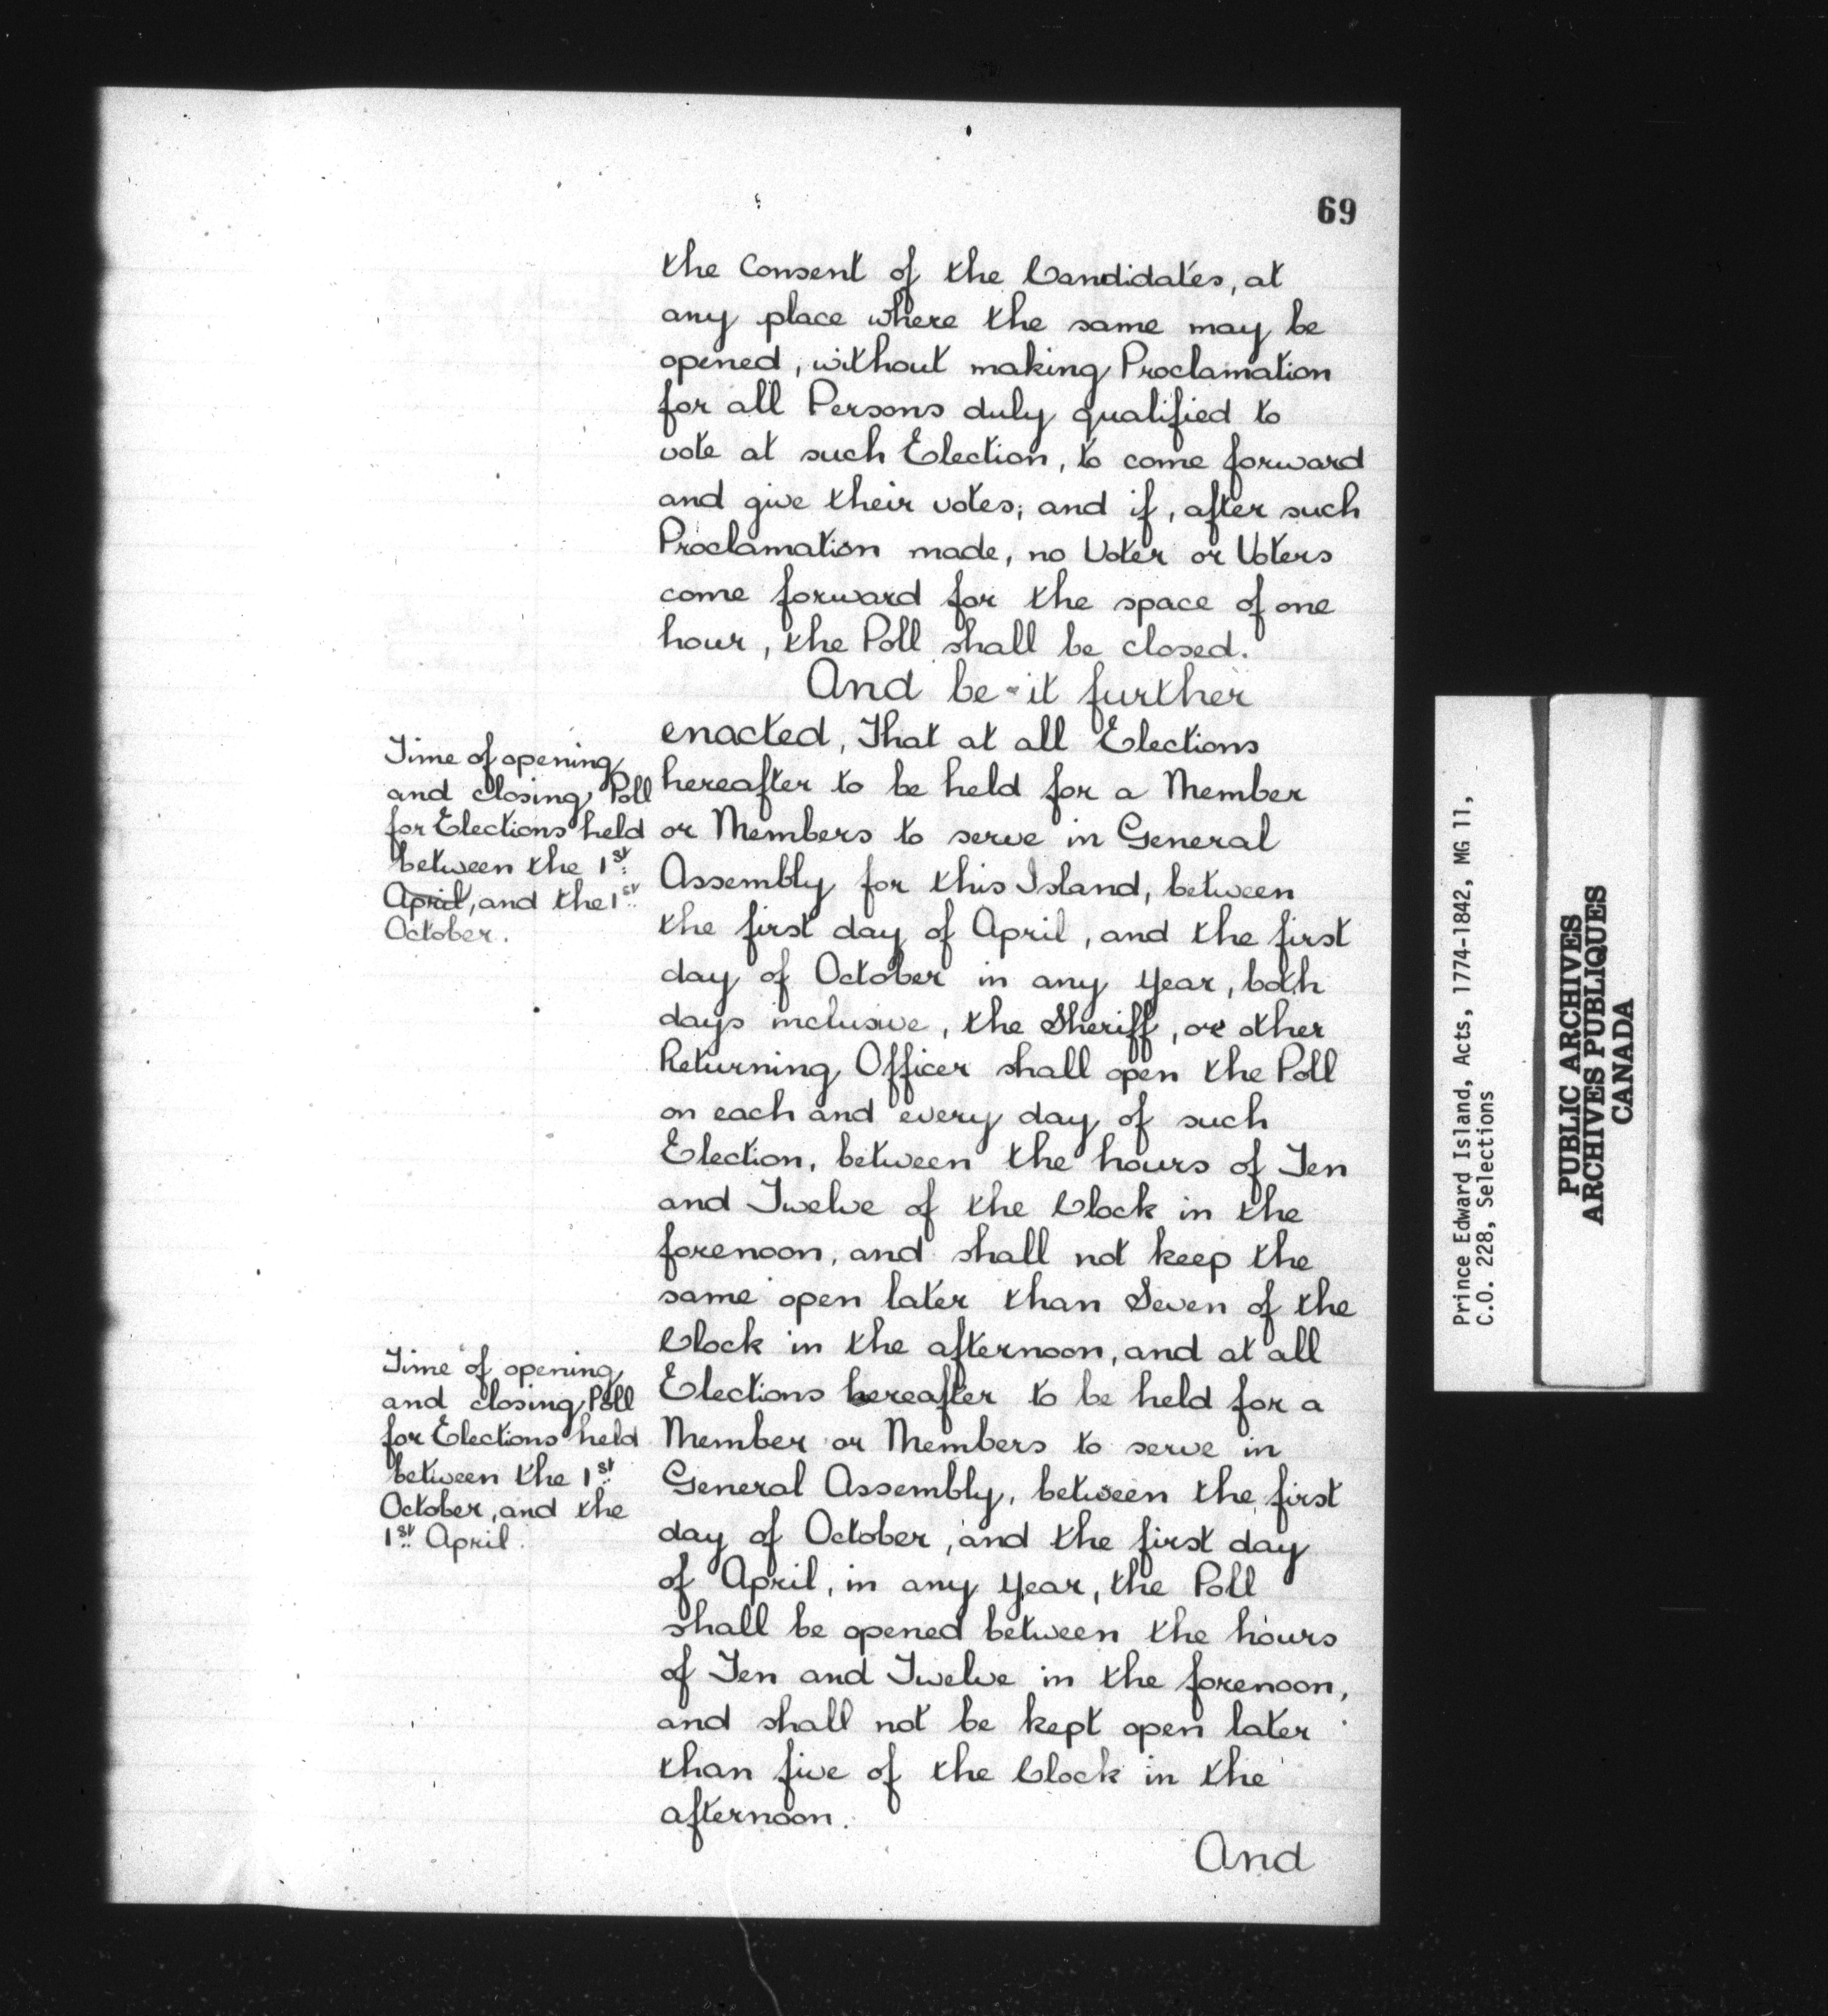 69
the Consent of the Candidates, at
any place where the same may be
opened, without making Proclamation
for all Persons duly qualified to
vote at such Election, to come forward
and give their votes; and if, after such
Proclamation made, no Voter or Voters
come forward for the space of one
hour, the Poll shall be closed.
And be it further
enacted, That at all Elections
hereafter to be held for a Member
or Members to serve in General
Assembly for this Island, between
the first day of April, and the first
day of October in any year, both
days inclusive, the Sheriff, or other
Returning Officer shall open the Poll
on each and every day of such
Election, between the hours of Ten
and Twelve of the Clock in the
forenoon, and shall not keep the
same open later than Seven of the
Clock in the afternoon, and at all
Elections hereafter to be held for a
Member or Members to serve in
General Assembly, between the first
day of October, and the first day
of April, in any year, the Poll
shall be opened between the hours
of Ten and Twelve in the forenoon,
and shall not be kept open later
than five of the Clock in the
afternoon.
And
Time of opening
and closing Poll
for Elections held
between the 1st
April, and the 1st
October.
Time of opening
and closing Poll
for Elections held
between the 1st
October, and the
1st April.
Prince Edward Island, Acts, 1774-1842, MG 11,
C.O. 228, Selections
PUBLIC ARCHIVES
ARCHIVES PUBLIQUES
CANADA